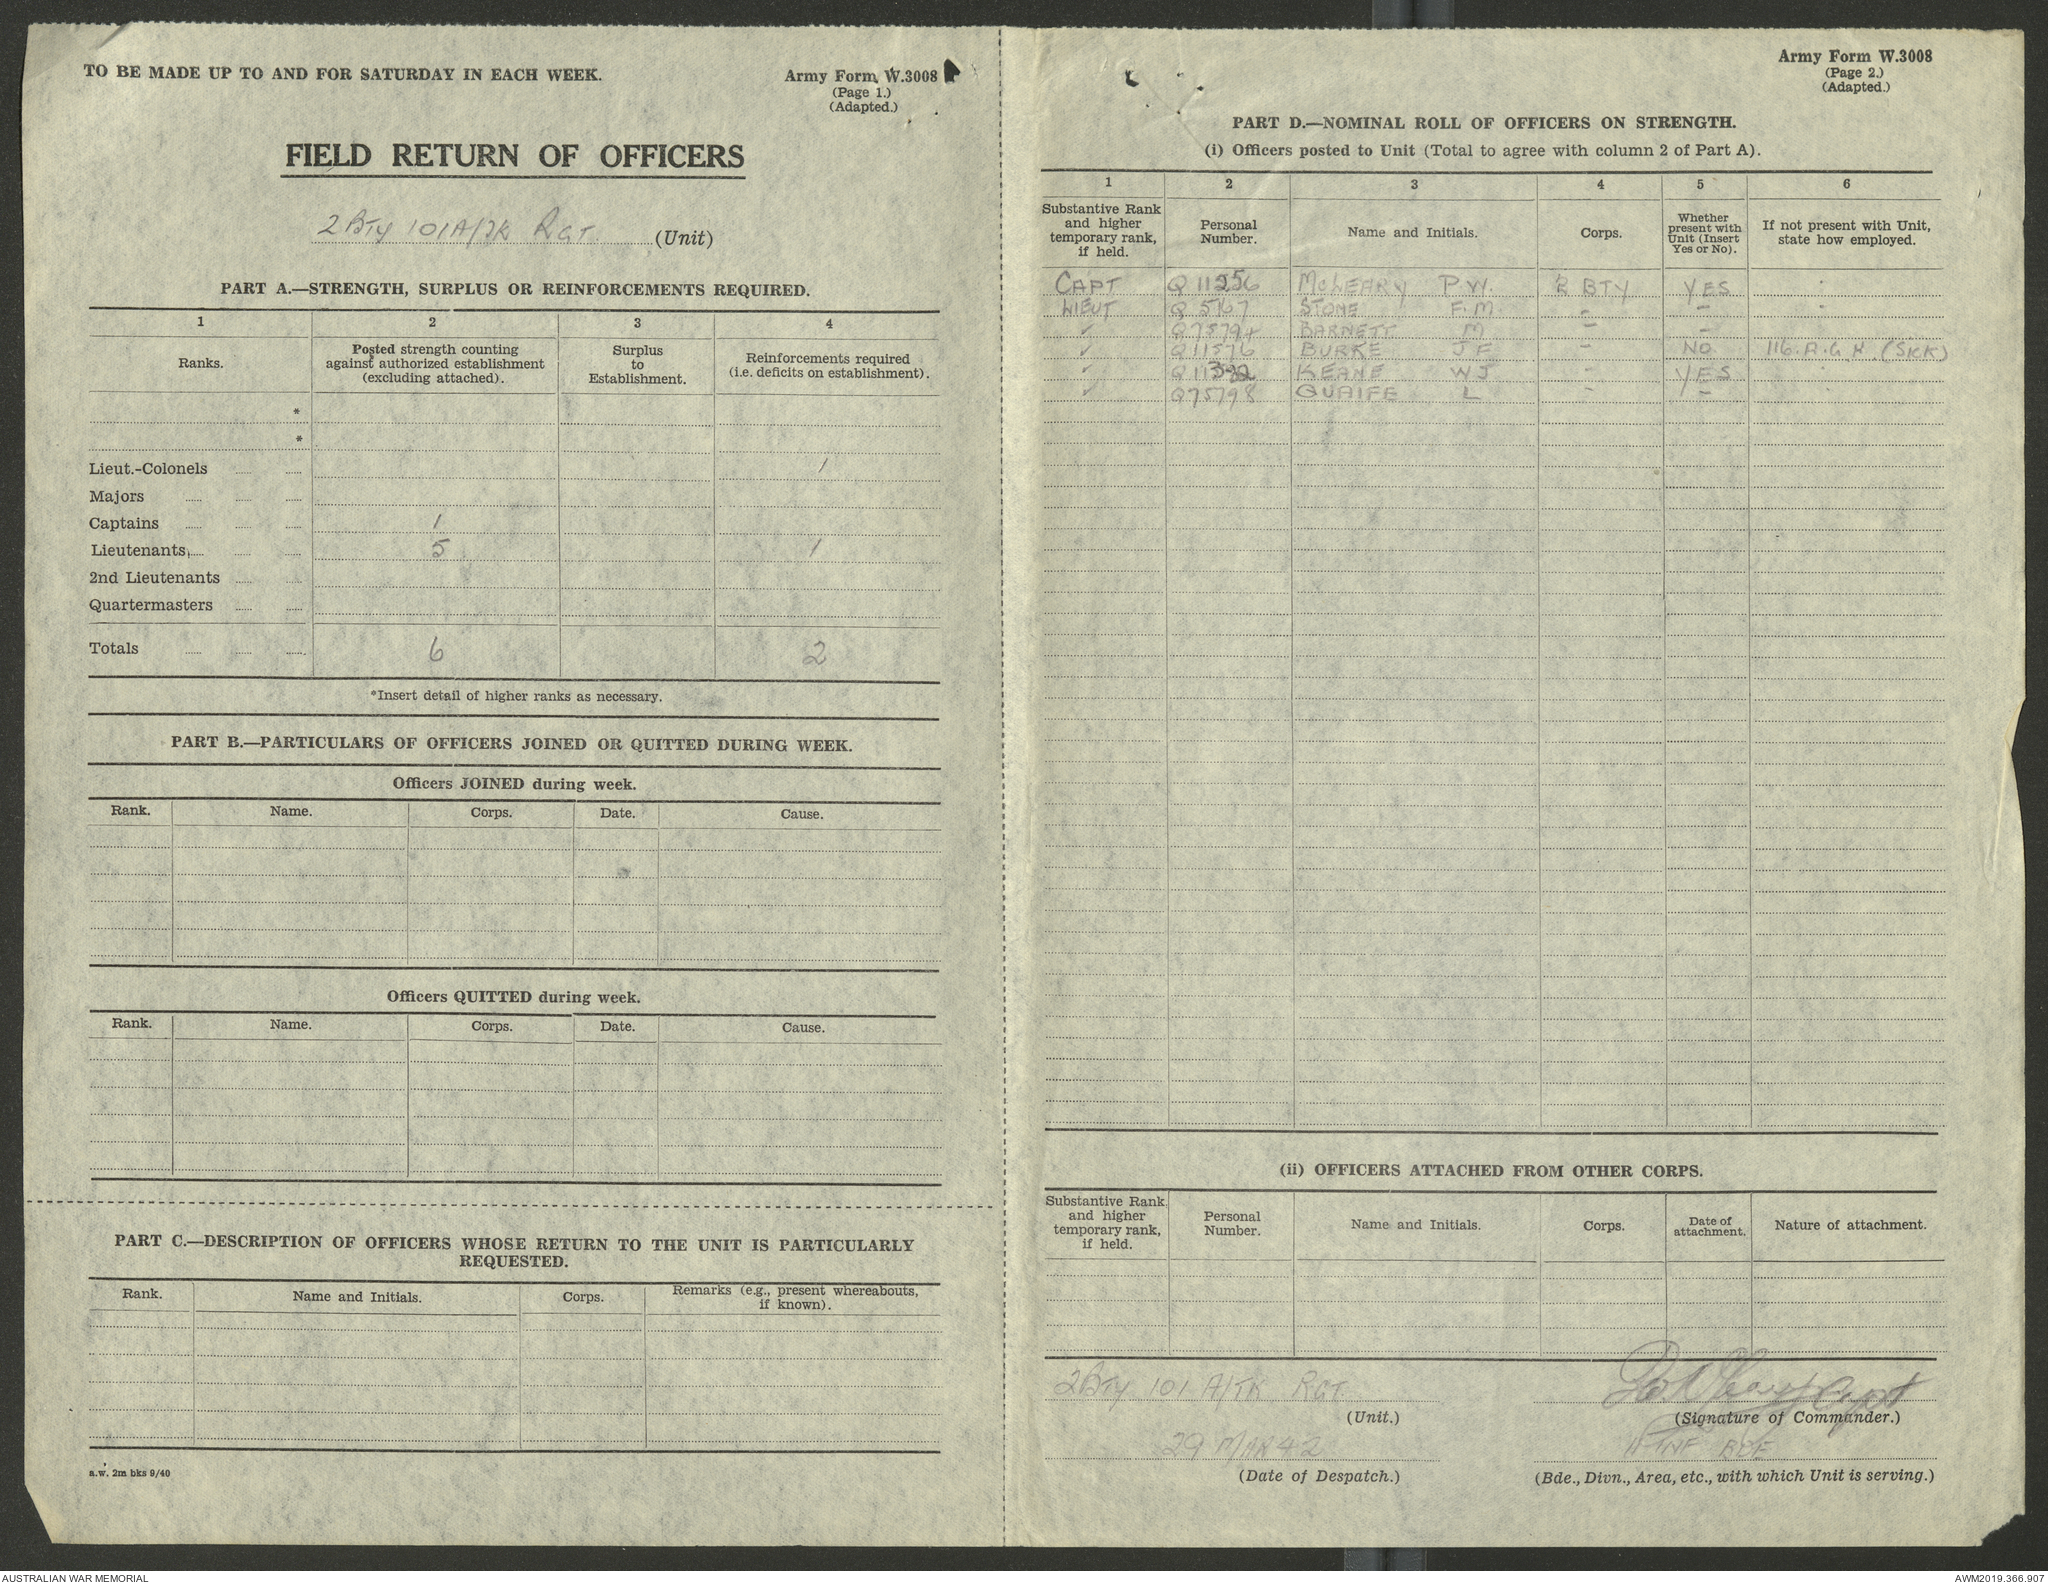 TO BE MADE UP TO AND FOR SATURDAY IN EACH WEEK.
Army Form W.3008
(Page 1.)
(Adapted.)
FIELD RETURN OF OFFICERS
2 BTY 101 A/TK RGT. (Unit)
PART A.—STRENGTH, SURPLUS OR REINFORCEMENTS REQUIRED.
1 2 3 4
Ranks. Posted strength counting against authorized establishment (excluding attached). Surplus to Establishment. Reinforcements required (i.e. deficits on establishment).
*
*
Lieut.-Colonels 1
Majors
Captains 1
Lieutenants 5 1
2nd Lieutenants
Quartermasters
Totals 6 2
*Insert detail of higher ranks as necessary.
PART B.—PARTICULARS OF OFFICERS JOINED OR QUITTED DURING WEEK.
Officers JOINED during week.
Rank. Name. Corps. Date. Cause.
Officers QUITTED during week.
Rank. Name. Corps. Date. Cause.
PART C.—DESCRIPTION OF OFFICERS WHOSE RETURN TO THE UNIT IS PARTICULARLY
REQUESTED.
Rank. Name and Initials. Corps. Remarks (e.g., present whereabouts, if known).
a.w. 2m bks 9/40
Army Form W.3008
(Page 2.)
(Adapted.)
PART D.—NOMINAL ROLL OF OFFICERS ON STRENGTH.
(i) Officers posted to Unit (Total to agree with column 2 of Part A).
1 2 3 4 5 6
Substantive Rank and higher temporary rank, if held. Personal Number. Name and Initials. Corps. Whether present with Unit (Insert Yes or No). If not present with Unit, state how employed.
CAPT Q 11256 McLEARY P W. 2 BTY YES -
LIEUT Q 5167 STONE F. M. - - -
" Q75794 BARNETT M - -
" Q11576 BURKE J F - NO 116. A. G. H. (SICK)
" KEANE W J - YES -
" Q75798 QUAIFE L - -
(ii) OFFICERS ATTACHED FROM OTHER CORPS.
Substantive Rank and higher temporary rank, if held. Personal Number. Name and Initials. Corps. Date of attachment. Nature of attachment.
2 BTY 101 A/TK RGT.
(Unit.)
Capt
(Signature of Commander.)
29 MAR 42
(Date of Despatch.)
11 INF BDE
(Bde., Divn., Area, etc., with which Unit is serving.)
AUSTRALIAN WAR MEMORIAL
AWM2019.366.907